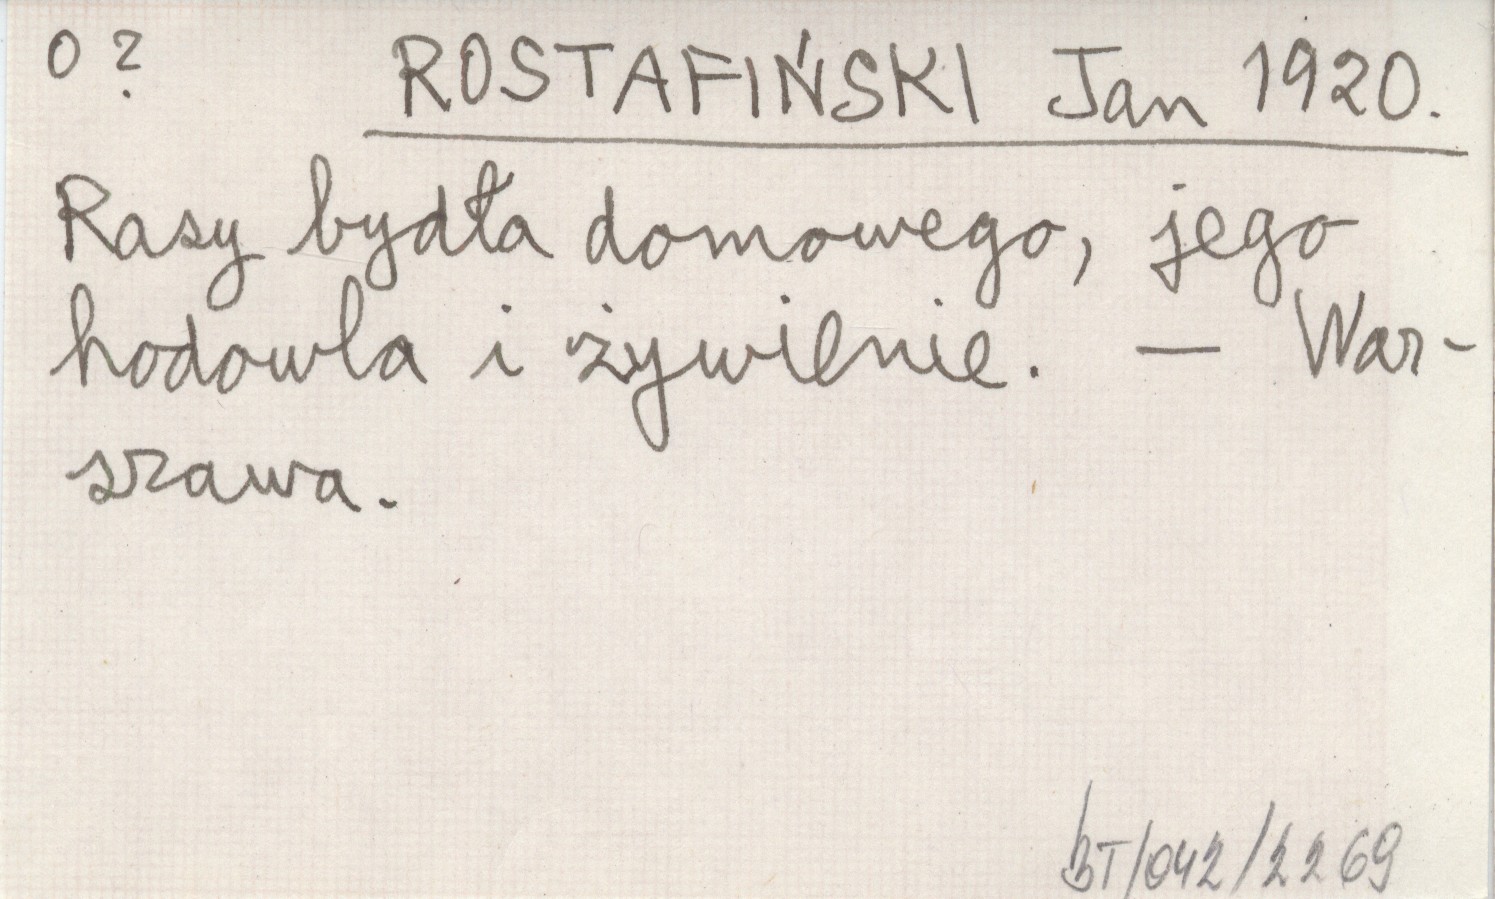 O ? ROSTAFIŃSKI Jan 1920.
Rasy bydła domowego, jego
hodowla i żywienie. — War-
szawa.
BT/042/2269